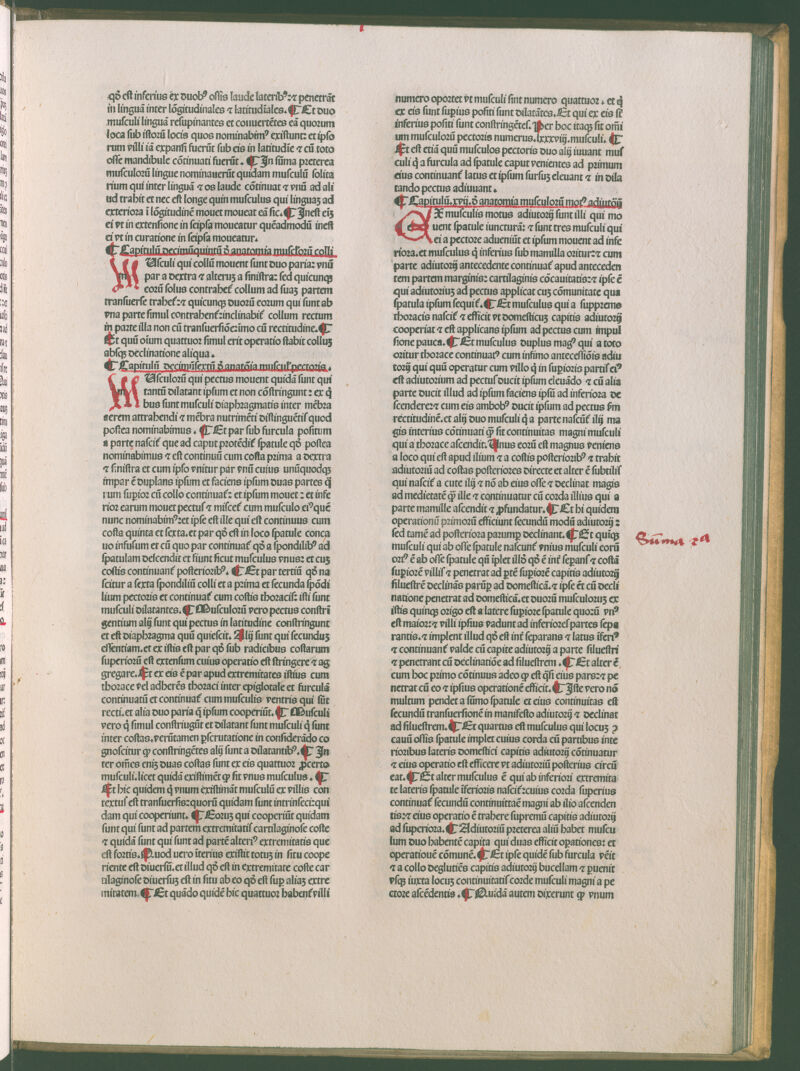 qđ est inferius ex duob⁹ ossis laude laterib⁹: ⁊ penetrāt
in linguā inter lōgitudinales ⁊ latitudiales. ¶ Et duo
musculi linguā resupinantes et conuertētes eā quorum
loca sub istorū locis quos nominabim⁹ existunt: et ipso
rum villi iā expansi fuerūt sub eis in latitudīe ⁊ cū toto
osse mandibule cōtinuati fuerūt. ¶ In sūma preterea
musculorū lingue nominauerūt quidam musculū solita
rium qui inter linguā ⁊ os laude cōtinuat ⁊ vnū ad ali
ud trahit et nec est longe quin musculus qui linguaȝ ad
exteriora ī lōgitudinē mouet moueat eā sic. ¶ Inest eiȝ
ei vt in extensione in seipsa moueatur quēadmodū inest
ei vt in curatione in seipsa moueatur.
¶ Capitulū decimūquintū đ anatomia musclorū colli
MUsculi qui collū mouent sunt duo paria: vnū
par a dextra ⁊ alteruȝ a sinistra: sed quicunqȝ
eorū solus contrahet̄ collum ad suaȝ partem
transuerse trahet̄: ⁊ quicunqȝ duorū eorum qui sunt ab
vna parte simul contrahent̄: inclinabit̄ collum rectum
in parte illa non cū transuersiōe: imo cū rectitudine. ¶
Et quū oium quattuor simul erit operatio stabit colluȝ
absqȝ declinatione aliqua.
¶ Capitulū decimūsextū đ anatōia muscul̄ pectoris.
MUsculorū qui pectus mouent quidā sunt qui
tantū dilatant ipsum et non cōstringunt: ex q̄
bus sunt musculi diaphragmatis inter mēbra
aerem attrahendi ⁊ mēbra nutrimēti distinguētis quod
postea nominabimus. ¶ Et par sub furcula positum
a parte nascit̄ que ad caput protēdit̄ spatule qđ postea
nominabimus ⁊ est continuū cum costa prima a dextra
⁊ sinistra et cum ipso vnitur par vnū cuius vnūquodqȝ
impar ē duplans ipsum et faciens ipsum duas partes q̄
rum supior cū collo continuat̄: ⁊ ipsum mouet: et infe
rior earum mouet pectus ⁊ miscet̄ cum musculo ei⁹ quē
nunc nominabim⁹: et ipse est ille qui est continuus cum
costa quinta et sexta. et par qđ est in loco spatule conca
uo infusum et cū quo par continuat̄ qđ a spondilib⁹ ad
spatulam descendit et siunt sicut musculus vnus: et cuȝ
costis continuant̄ posteriorib⁹. ¶ Et par tertiū qđ na
scitur a sexta spondiliū colli et a prima et secunda spōdi
lium pectoris et continuat̄ cum costis thoracis: isti sunt
musculi dilatantes. ¶ Musculorū vero pectus constri
gentium alij sunt qui pectus in latitudine constringunt
et est diaphragma quū quiescit. Alij sunt qui secunduȝ
essentiam. et ex istis est par qđ sub radicibus costarum
superiorū est extensum cuius operatio est stringere ⁊ ag
gregare. ¶ Et ex eis ē par apud extremitates istius cum
thorace vel adherēs thoraci inter epiglotale et furculā
continuatū et continuat̄ cum musculis ventris qui sūt
recti. et alia duo paria q̄ ipsum cooperiūt. ¶ Musculi
vero q̄ simul constringūt et dilatant sunt musculi q̄ sunt
inter costas. verūtamen pscrutatione in considerādo co
gnoscitur qđ constringētes alij sunt a dilatantib⁹. ¶ In
ter omēs enim duas costas sunt ex eis quattuor pcerto
musculi. licet quidā existimēt qđ sit vnus musculus. ¶
Et hic quidem q̄ vnum existimāt musculū ex villis con
textus est transuersis: quorū quidam sunt intrinseci: qui
dam qui cooperiunt. ¶ Eoruȝ qui cooperiūt quidam
sunt qui sunt ad partem extremitatis cartilaginose coste
⁊ quidā sunt qui sunt ad partē alteri⁹ extremitatis que
est fortis. Quod uero īterius existit totuȝ in situ coope
riente est diuersū. et illud qđ est in extremitate coste car
tilaginose diuersuȝ est in situ ab eo qđ est sup aliaȝ extre
mitatem. ¶ Et quādo quidē hic quattuor habent villi
numero oportet vt musculi sint numero quattuor. et q̄
ex eis sunt supius positi sunt dilatātes. Et qui ex eis st̄
inferius positi sunt constringētes. Per hoc itaqȝ sit oim̄
um musculorū pectoris numerus. lxxxviij. musculi. ¶
Et est etiā quū musculos pectoris duo alij iuuant mus
culi q̄ a furcula ad spatule caput venientes ad primum
eius continuant̄ latus et ipsum sursuȝ eleuant ⁊ in dila
tando pectus adiuuant.
¶ Capitulū. xvij. đ anatomia musculorū mot⁹ adiutorij
EX musculis motus adiutorij sunt illi qui mo
uent spatule iuncturā: ⁊ sunt tres musculi qui
ei a pectore adueniūt et ipsum mouent ad infe
riora. et musculus q̄ inferius sub mamilla oritur: ⁊ cum
parte adiutorij antecedente continuat̄ apud anteceden
tem partem marginis: cartilaginis cōcauitatis: ⁊ ipse ē
qui adiutorius ad pectus applicat cuȝ cōmunitate qua
spatula ipsum sequit̄. ¶ Et musculus qui a suppremo
thoracis nascit̄ ⁊ efficit vt domesticuȝ capitis adiutorij
cooperiat ⁊ est applicans ipsum ad pectus cum impul
sione pauca. ¶ Et musculus duplus mag⁹ qui a toto
oritur thorace continuat⁹ cum infimo antecessiōis adiu
torij qui quū operatur cum villo q̄ in supiorio partis ei⁹
est adiutorium ad pectus ducit ipsum eleuādo ⁊ cū alia
parte ducit illud ad ipsum faciens ipsū ad inferiora de
scendere: ⁊ cum eis ambob⁹ ducit ipsum ad pectus s̄m
rectitudinē. et alij duo musculi q̄ a parte nascūt̄ ilij ma
gis interius cōtinuati qđ sit continuitas magni musculi
qui a thorace ascendit. Unus eorū est magnus veniens
a loco qui est apud ilium ⁊ a costis posteriorib⁹ ⁊ trahit
adiutoriū ad costas posteriores directe et alter ē subtilis
qui nascit̄ a cute ilij ⁊ nō ab eius osse ⁊ declinat magis
ad medietatē qđ ille ⁊ continuatur cū corda illius qui a
parte mamille ascendit ⁊ pfundatur. ¶ Et hi quidem
operationū primorū efficiunt secundū modū adiutorij:
sed tamē ad posteriora parump declinant. ¶ Et quiqȝ
musculi qui ab osse spatule nascunt̄ vnius musculi eorū
ort⁹ ē ab osse spatule qū īplet illđ qđ ē int̄ sepans ⁊ costā
supiorē villis ⁊ penetrat ad ptē supiorē capitis adiutorij
siluestrē declinās parūp ad domesticā. ⁊ ipse ēt cū decli
natione penetrat ad domesticā. et duorū musculoruȝ ex
istis quinqȝ origo est a latere supiore spatule quorū vn⁹
est maior: ⁊ villi ipsius vadunt ad inferiores partes sepa
rantis. ⁊ implent illud qđ est int̄ separans ⁊ latus īferi⁹
⁊ continuant̄ valde cū capite adiutorij a parte siluestri
⁊ penetrant cū declinatiōe ad siluestrem. ¶ Et alter ē
cum hoc primo cōtinuus adeo qđ est q̄si eius pars: ⁊ pe
netrat cū eo ⁊ ipsius operationē efficit. ¶ Iste vero nō
multum pendet a sūmo spatule et eius continuitas est
secundū transuersionē in manifesto adiutorij ⁊ declinat
ad siluestrem. ¶ Et quartus est musculus qui locuȝ ɔ
cauū ossis spatule implet cuius corda cū partibus inte
rioribus lateris domestici capitis adiutorij cōtinuatur
⁊ eius operatio est efficere vt adiutoriū posterius circū
eat. ¶ Et alter musculus ē qui ab inferiori extremita
te lateris spatule īferioris nascit̄: cuius corda superius
continuat̄ secundū continuitatē magni ab ilio ascenden
tis: ⁊ eius operatio ē trahere supremū capitis adiutorij
ad superiora. ¶ Adiutoriū preterea aliū habet muscu
lum duo habentē capita qui duas efficit opationes: et
operationē cōmunē. ¶ Et ipse quidē sub furcula vēit
⁊ a collo deglutiēs capitis adiutorij bucellam ⁊ puenit
vsqȝ iuxta locuȝ continuitatis corde musculi magni a pe
ctore ascēdentis. ¶ Quidā autem dixerunt qđ vnum
Sūma 2a